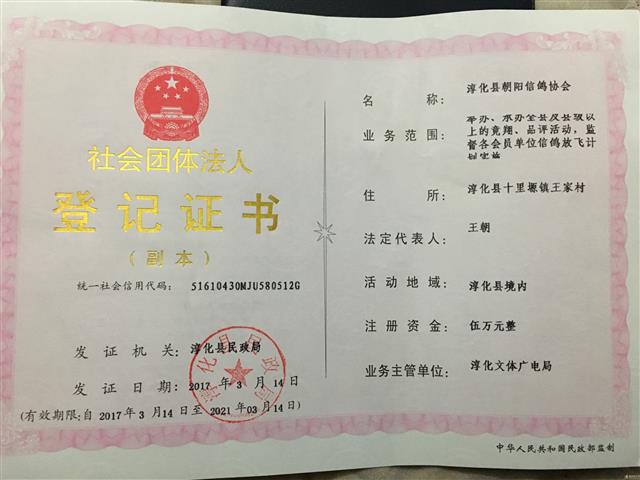 社会团体法人
登记证书
(副本)
统一社会信用代码: 51610430MJU580512G
发证机关: 淳化县民政局
发证日期: 2017 年 3 月 14 日
(有效期限:自 2017 年 3 月 14 日至 2021 年 03 月 14 日)
名称: 淳化县朝阳信鸽协会
业务范围: 举办、承办全县及县级以
上的竟翔、品评活动，监
督各会员单位信鸽放飞计
划实施
住所: 淳化县十里塬镇王家村
法定代表人: 王朝
活动地域: 淳化县境内
注册资金: 伍万元整
业务主管单位: 淳化文体广电局
中华人民共和国民政部监制
淳化县民政局